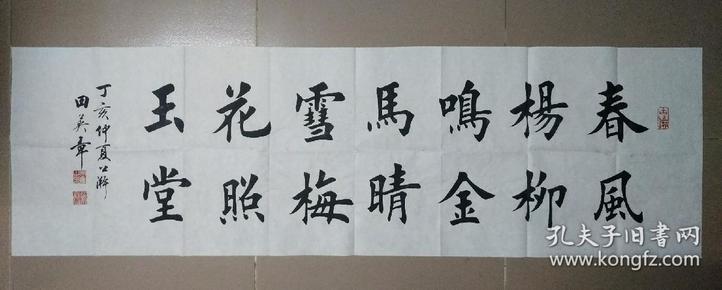 春風
楊柳
鳴金
馬晴
雪梅
花照
玉堂
丁亥仲夏
田英章
孔夫子旧书网
www.kongfz.com